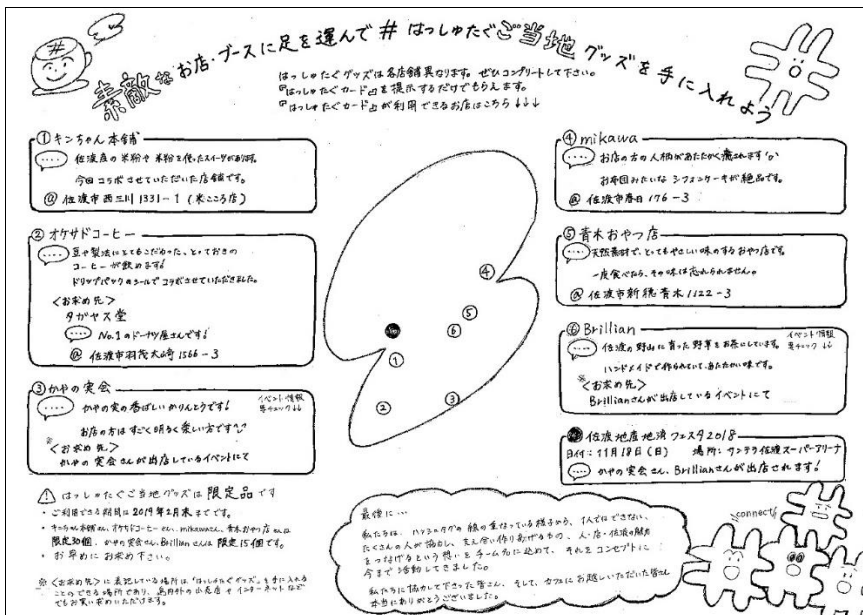 素敵なお店・ブースに足を運んで#はっしゅたぐご当地グッズを手に入れよう
はっしゅたぐグッズは各店舗異なります。ぜひコンプリートして下さい。
『はっしゅたぐカード』を提示するだけでもらえます。
『はっしゅたぐカード』が利用できるお店はこちら↓↓↓
①キンちゃん本舗
佐渡産の米粉や米粉を使ったスイーツがあります。
今回コラボさせていただいた店舗です。
@ 佐渡市西三川1331-1 (米こころ店)
② オケサドコーヒー
豆や製法にとてもこだわった、とっておきの
コーヒーが飲めます!
ドリップパックのシールでコラボさせていただきました。
<お求め先>
タガヤス堂
No.1のドーナツ屋さんです!
@ 佐渡市羽茂大崎1566-3
③かやの実会
イベント情報
要チェック↓↓
かやの実の香ばしいかりんとうです!
お店の方はすごく明るく楽しい方です
※
<お求め先>
かやの実会さんが出店しているイベントにて
④mikawa
お店の方の人柄があたたかく癒されます
お布団みたいなシフォンケーキが絶品です。
@ 佐渡市春日176-3
⑤青木おやつ店
天然素材で、とってもやさしい味のするおやつ店です。
一度食べたら、その味は忘れられません。
@ 佐渡市新穂青木1122-3
⑥Brillian
イベント情報
要チェック↓↓
佐渡の野山に育った野草をお茶にしています。
ハンドメイドで作られていて、あたたかい味です。
※
<お求め先>
Brillianさんが出店しているイベントにて
佐渡地産地消フェスタ2018
日付:11月18日(日) 場所:サンテラ佐渡スーパーアリーナ
かやの実会さん、Brillianさんが出店されます!
④
⑤
⑥
①
②
③
はっしゅたぐご当地グッズは限定品です
・ご利用できる期間は2019年2月末までです。
・キンちゃん本舗さん、オケサドコーヒーさん、mikawaさん、青木おやつ店さんは
限定30個、かやの実会さん、Brillianさんは限定15個です。
・お早めにお求め下さい。
※<お求め先>に表記している場所は「はっしゅたぐグッズ」を手に入れる
ことのできる場所であり、島内外の小売店やインターネットなど
でもお買い求めいただけます。
最後に…
私たちは、ハッシュタグの線の重なっている様子から、1人ではできない、
たくさんの人が協力し、支え合い作りあげるもの、人・店・佐渡の魅力
をつなげるという想いをチーム名に込めて、それをコンセプトに
今まで活動してきました。
私たちに協力して下さった皆さん、そして、カフェにお越しいただいた皆さん
本当にありがとうございました。
connect